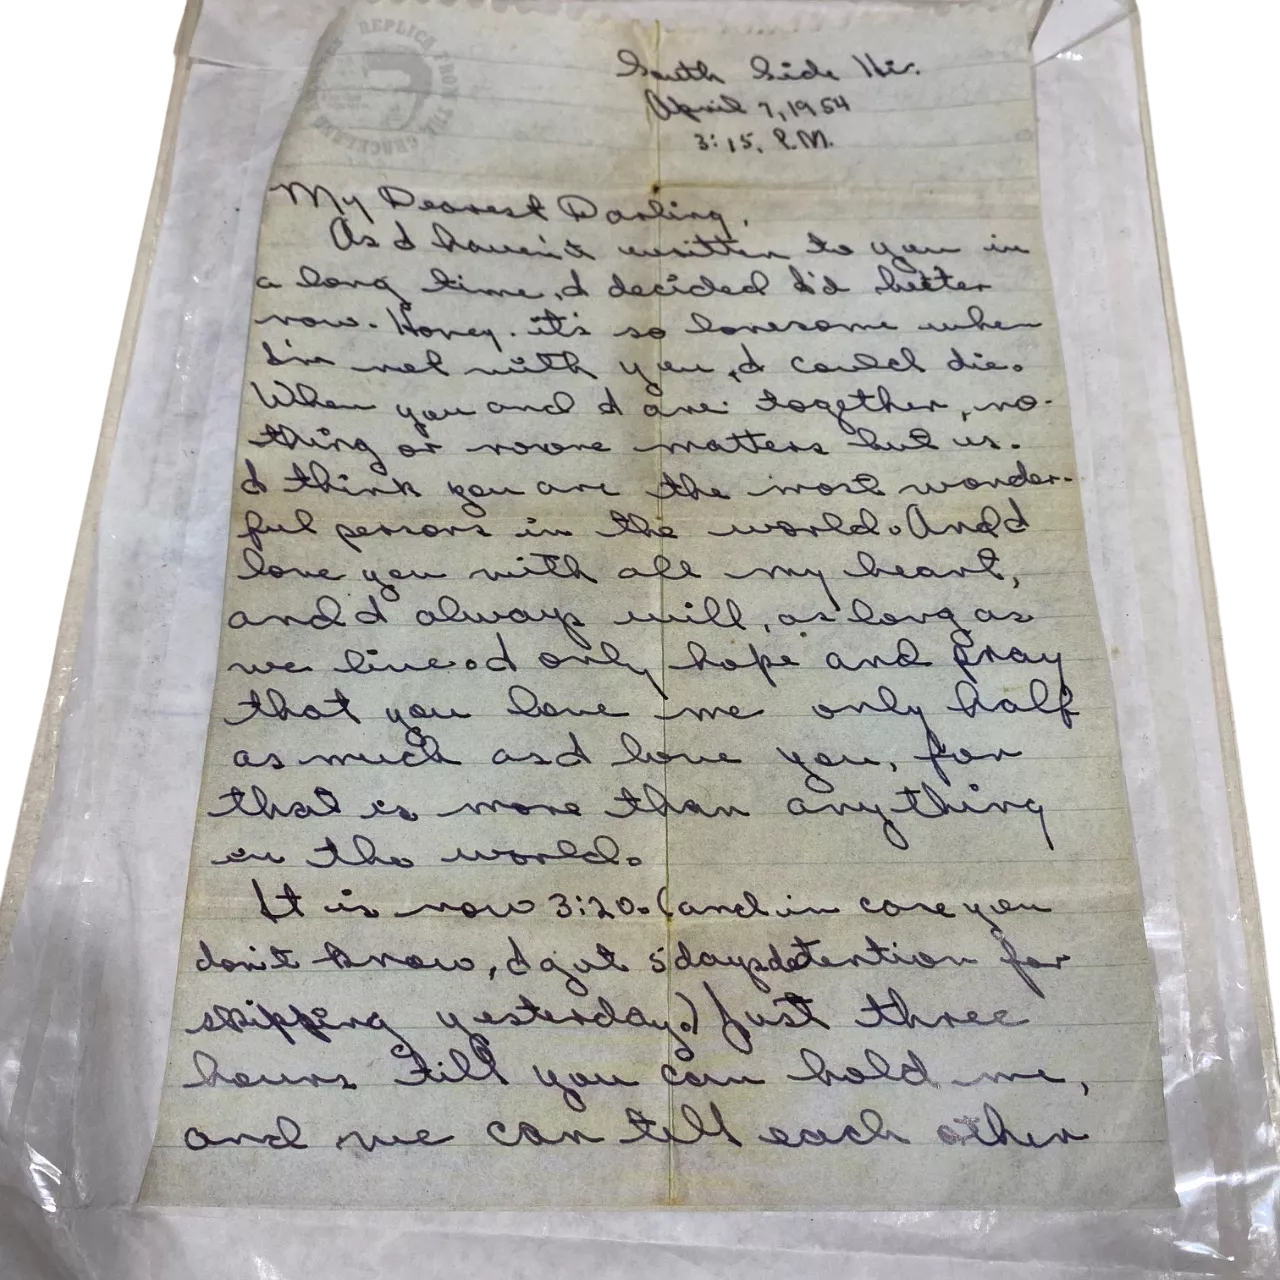 REPLICA FROM THE
South Side Hi.
April 7, 1954
3:15. P.M.
My Dearest Darling,
As I haven't written to you in
a long time, I decided I'd better
now. Honey. it's so lonesome when
I'm not with you, I could die.
When you and I are together, no-
thing or noone matters but us.
I think you are the most wonder-
ful person in the world. And I
love you with all my heart,
and I always will, as long as
we live. I only hope and pray
that you love me only half
as much as I love you, for
that is more than anything
in the world.
It is now 3:20. (and in case you
don't know, I got 5 days detention for
skipping yesterday.) Just three
hours till you can hold me,
and we can tell each other